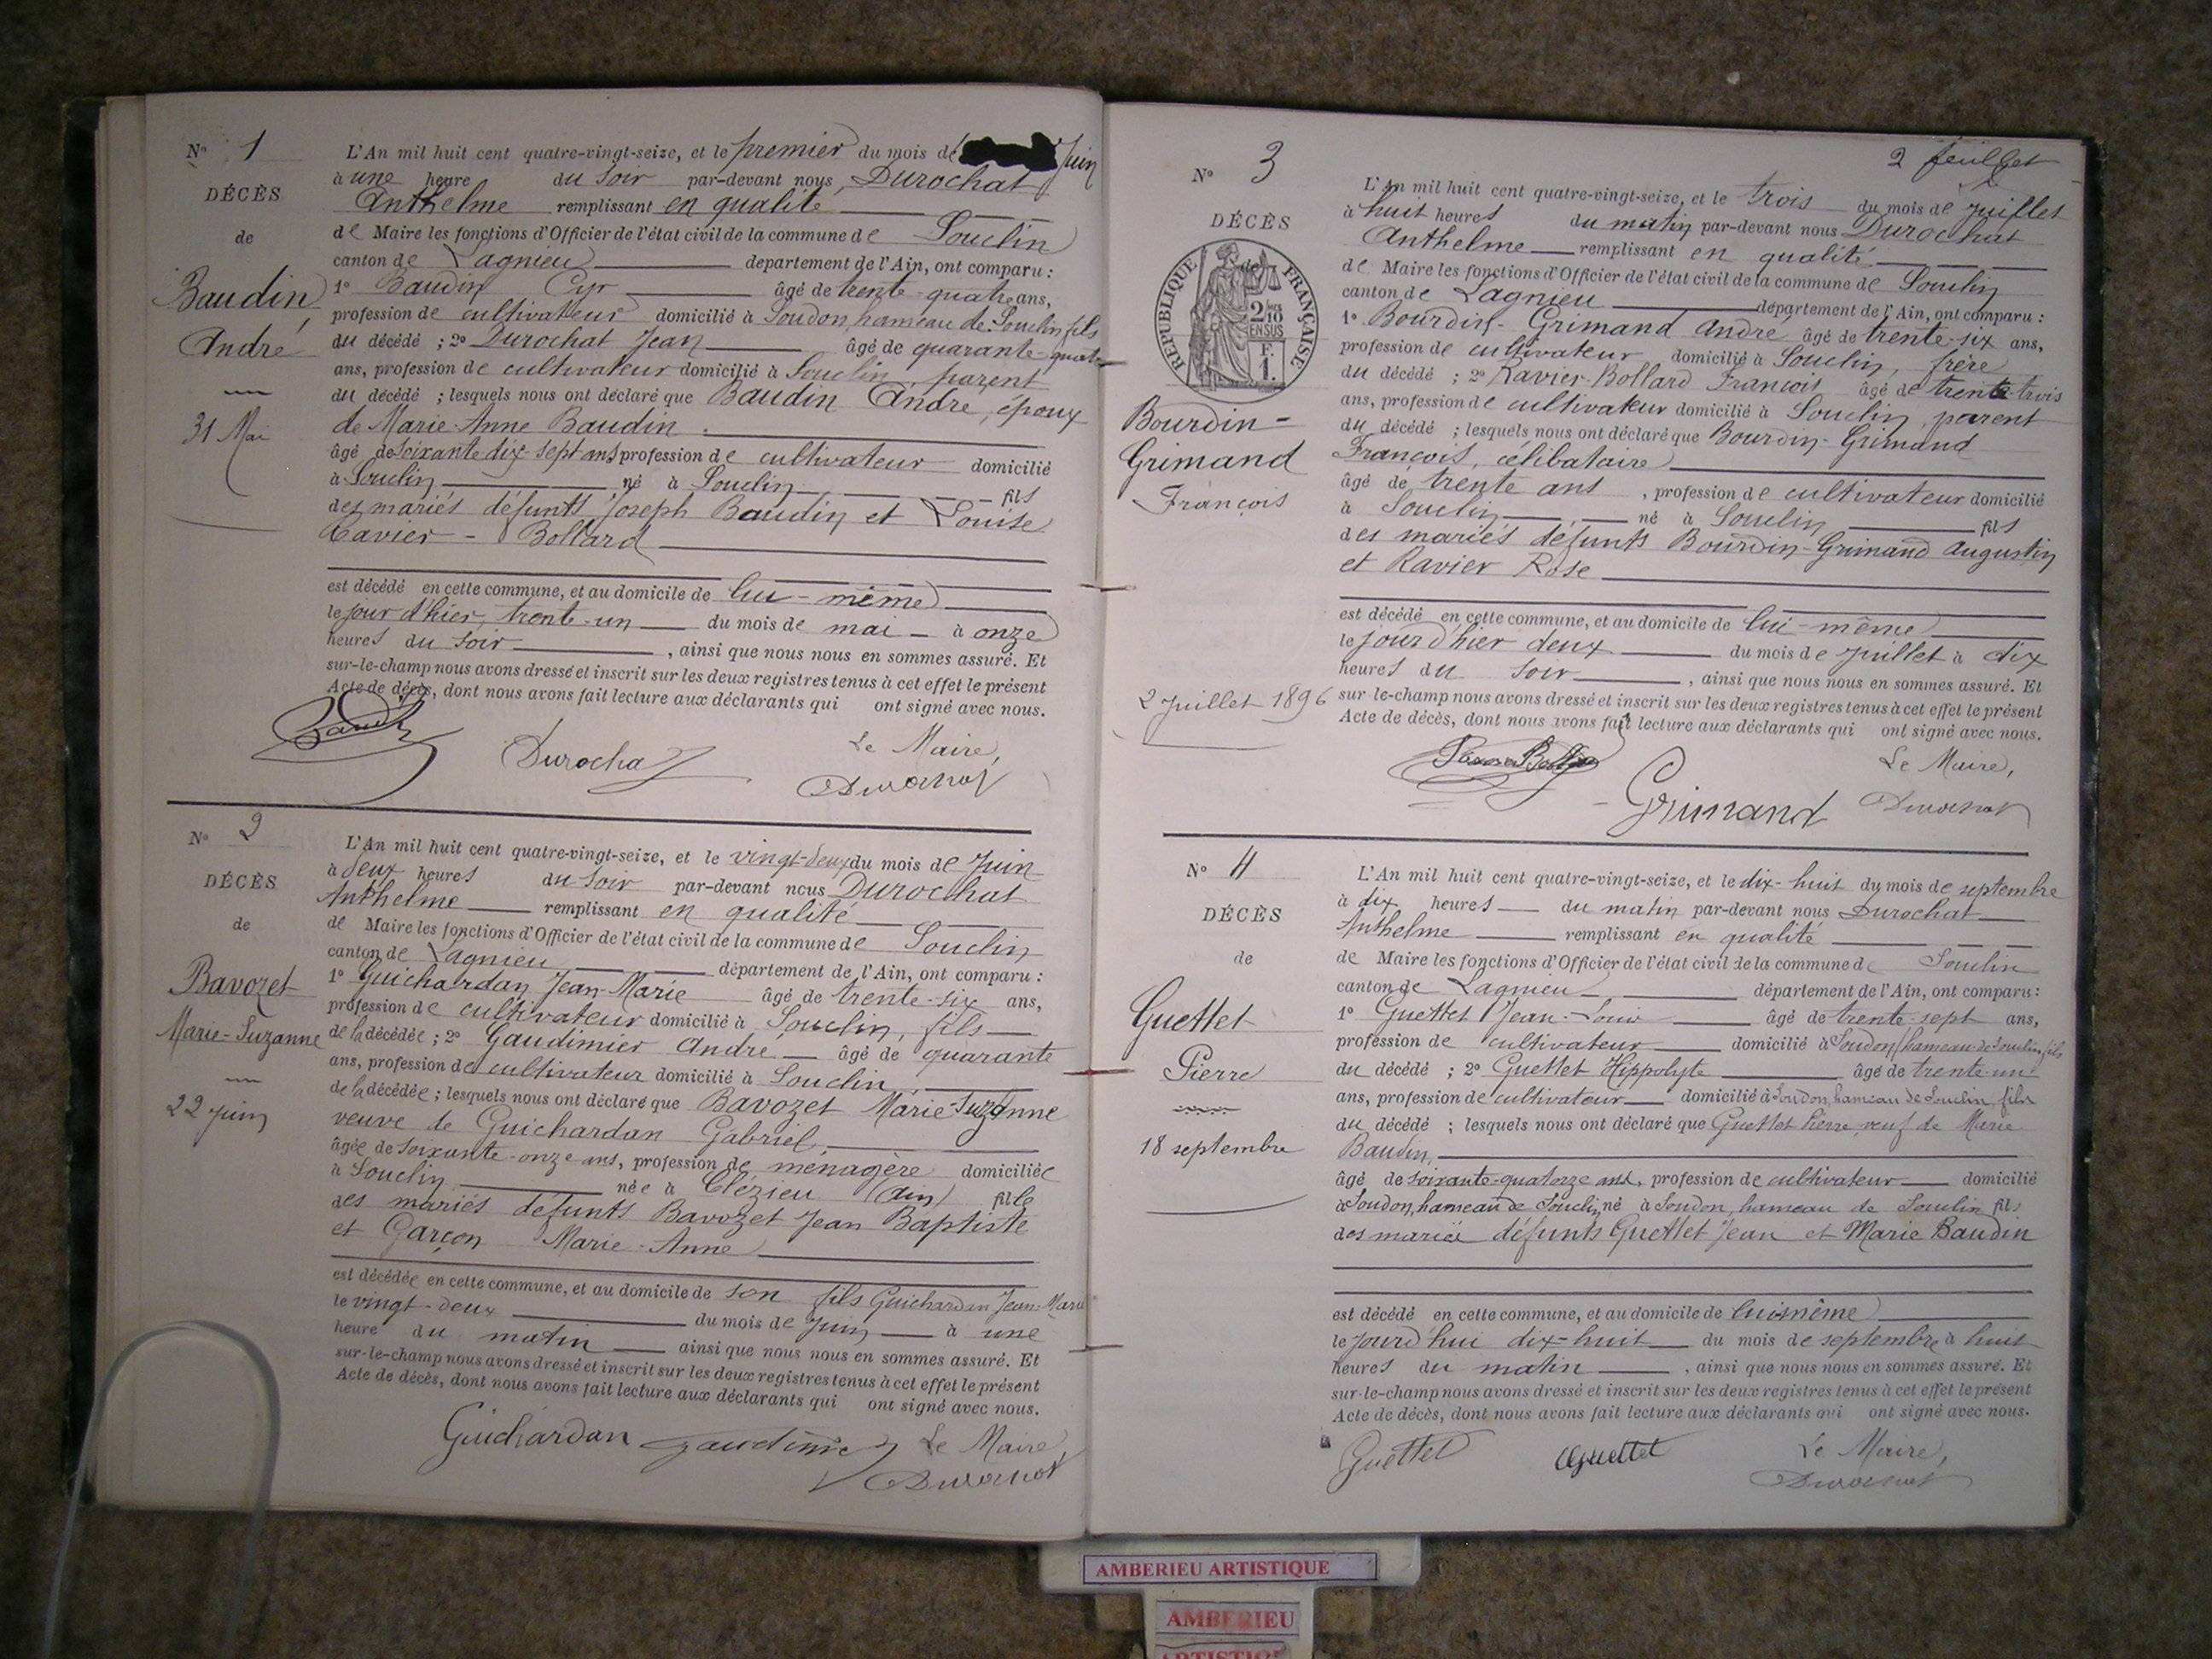 N° 1
DÉCÈS
de
Baudin
André
31 Mai
L'An mil huit cent quatre-vingt-seize, et le premier du mois de Juin
à une heure du soir par-devant nous, Durochat
Anthelme remplissant en qualité
de Maire les fonctions d'Officier de l'état civil de la commune de Souclin
canton de Lagnieu département de l'Ain, ont comparu :
1° Baudin Cyr âgé de trente-quatre ans,
profession de cultivateur domicilié à Soudon, hameau de Souclin, fils
du décédé ; 2° Durochat Jean âgé de quarante-quatre
ans, profession de cultivateur domicilié à Souclin, parent
du décédé ; lesquels nous ont déclaré que Baudin André, époux
de Marie-Anne Baudin
âgé de soixante dix-sept ans profession de cultivateur domicilié
à Souclin né à Souclin fils
des mariés défunts Joseph Baudin et Louise
Ravier-Bollard
est décédé en cette commune, et au domicile de lui-même
le jour d'hier, trente-un du mois de mai à onze
heures du soir, ainsi que nous nous en sommes assuré. Et
sur-le-champ nous avons dressé et inscrit sur les deux registres tenus à cet effet le présent
Acte de décès, dont nous avons fait lecture aux déclarants qui ont signé avec nous.
Baudin Durochat Le Maire,
Durochat
N° 2
DÉCÈS
de
Bavozet
Marie-Suzanne
22 juin
L'An mil huit cent quatre-vingt-seize, et le vingt-deux du mois de Juin
à deux heures du soir par-devant nous Durochat
Anthelme remplissant en qualité
de Maire les fonctions d'Officier de l'état civil de la commune de Souclin
canton de Lagnieu département de l'Ain, ont comparu :
1° Guichardan Jean-Marie âgé de trente-six ans,
profession de cultivateur domicilié à Souclin, fils
de la décédée ; 2° Gaudimier André âgé de quarante
ans, profession de cultivateur domicilié à Souclin
de la décédée ; lesquels nous ont déclaré que Bavozet Marie-Suzanne
veuve de Guichardan Gabriel
âgée de soixante-onze ans, profession de ménagère domiciliée
à Souclin née à Clézieu (Ain) fille
des mariés défunts Bavozet Jean Baptiste
et Garçon Marie-Anne
est décédée en cette commune, et au domicile de son fils Guichardan Jean-Marie
le vingt-deux du mois de Juin à une
heure du matin ainsi que nous nous en sommes assuré. Et
sur-le-champ nous avons dressé et inscrit sur les deux registres tenus à cet effet le présent
Acte de décès, dont nous avons fait lecture aux déclarants qui ont signé avec nous.
Guichardan gaudimier Le Maire,
Durochat
2 feuillet
N° 3
DÉCÈS
de
RÉPUBLIQUE FRANÇAISE
2/10 EN SUS
F. 1.
Bourdin-
Grimand
François
2 Juillet 1896
L'An mil huit cent quatre-vingt-seize, et le trois du mois de Juillet
à huit heures du matin par-devant nous Durochat
Anthelme remplissant en qualité
de Maire les fonctions d'Officier de l'état civil de la commune de Souclin
canton de Lagnieu département de l'Ain, ont comparu :
1° Bourdin-Grimand André âgé de trente-six ans,
profession de cultivateur domicilié à Souclin, frère
du décédé ; 2° Ravier-Bollard François âgé de trente-trois
ans, profession de cultivateur domicilié à Souclin, parent
du décédé ; lesquels nous ont déclaré que Bourdin-Grimand
François, célibataire
âgé de trente ans, profession de cultivateur domicilié
à Souclin né à Souclin fils
des mariés défunts Bourdin-Grimand Augustin
et Ravier Rose
est décédé en cette commune, et au domicile de lui-même
le jour d'hier deux du mois de Juillet à dix
heures du soir, ainsi que nous nous en sommes assuré. Et
sur-le-champ nous avons dressé et inscrit sur les deux registres tenus à cet effet le présent
Acte de décès, dont nous avons fait lecture aux déclarants qui ont signé avec nous.
Le Maire,
Grimand Durochat
N° 4
DÉCÈS
de
Guettet
Pierre
18 septembre
L'An mil huit cent quatre-vingt-seize, et le dix-huit du mois de septembre
à dix heures du matin par-devant nous Durochat
Anthelme remplissant en qualité
de Maire les fonctions d'Officier de l'état civil de la commune de Souclin
canton de Lagnieu département de l'Ain, ont comparu :
1° Guettet Jean-Louis âgé de trente-sept ans,
profession de cultivateur domicilié à Soudon, hameau de Souclin, fils
du décédé ; 2° Guettet Hippolyte âgé de trente-un
ans, profession de cultivateur domicilié à Soudon, hameau de Souclin, fils
du décédé ; lesquels nous ont déclaré que Guettet Pierre, veuf de Marie
Baudin,
âgé de soixante-quatorze ans, profession de cultivateur domicilié
à Soudon, hameau de Souclin, né à Soudon, hameau de Souclin fils
des mariés défunts Guettet Jean et Marie Baudin
est décédé en cette commune, et au domicile de lui-même
le jourd'hui dix-huit du mois de septembre à huit
heures du matin, ainsi que nous nous en sommes assuré. Et
sur-le-champ nous avons dressé et inscrit sur les deux registres tenus à cet effet le présent
Acte de décès, dont nous avons fait lecture aux déclarants qui ont signé avec nous.
Guettet Guettet Le Maire,
Durochat
AMBERIEU ARTISTIQUE
AMBERIEU
ARTISTIQUE